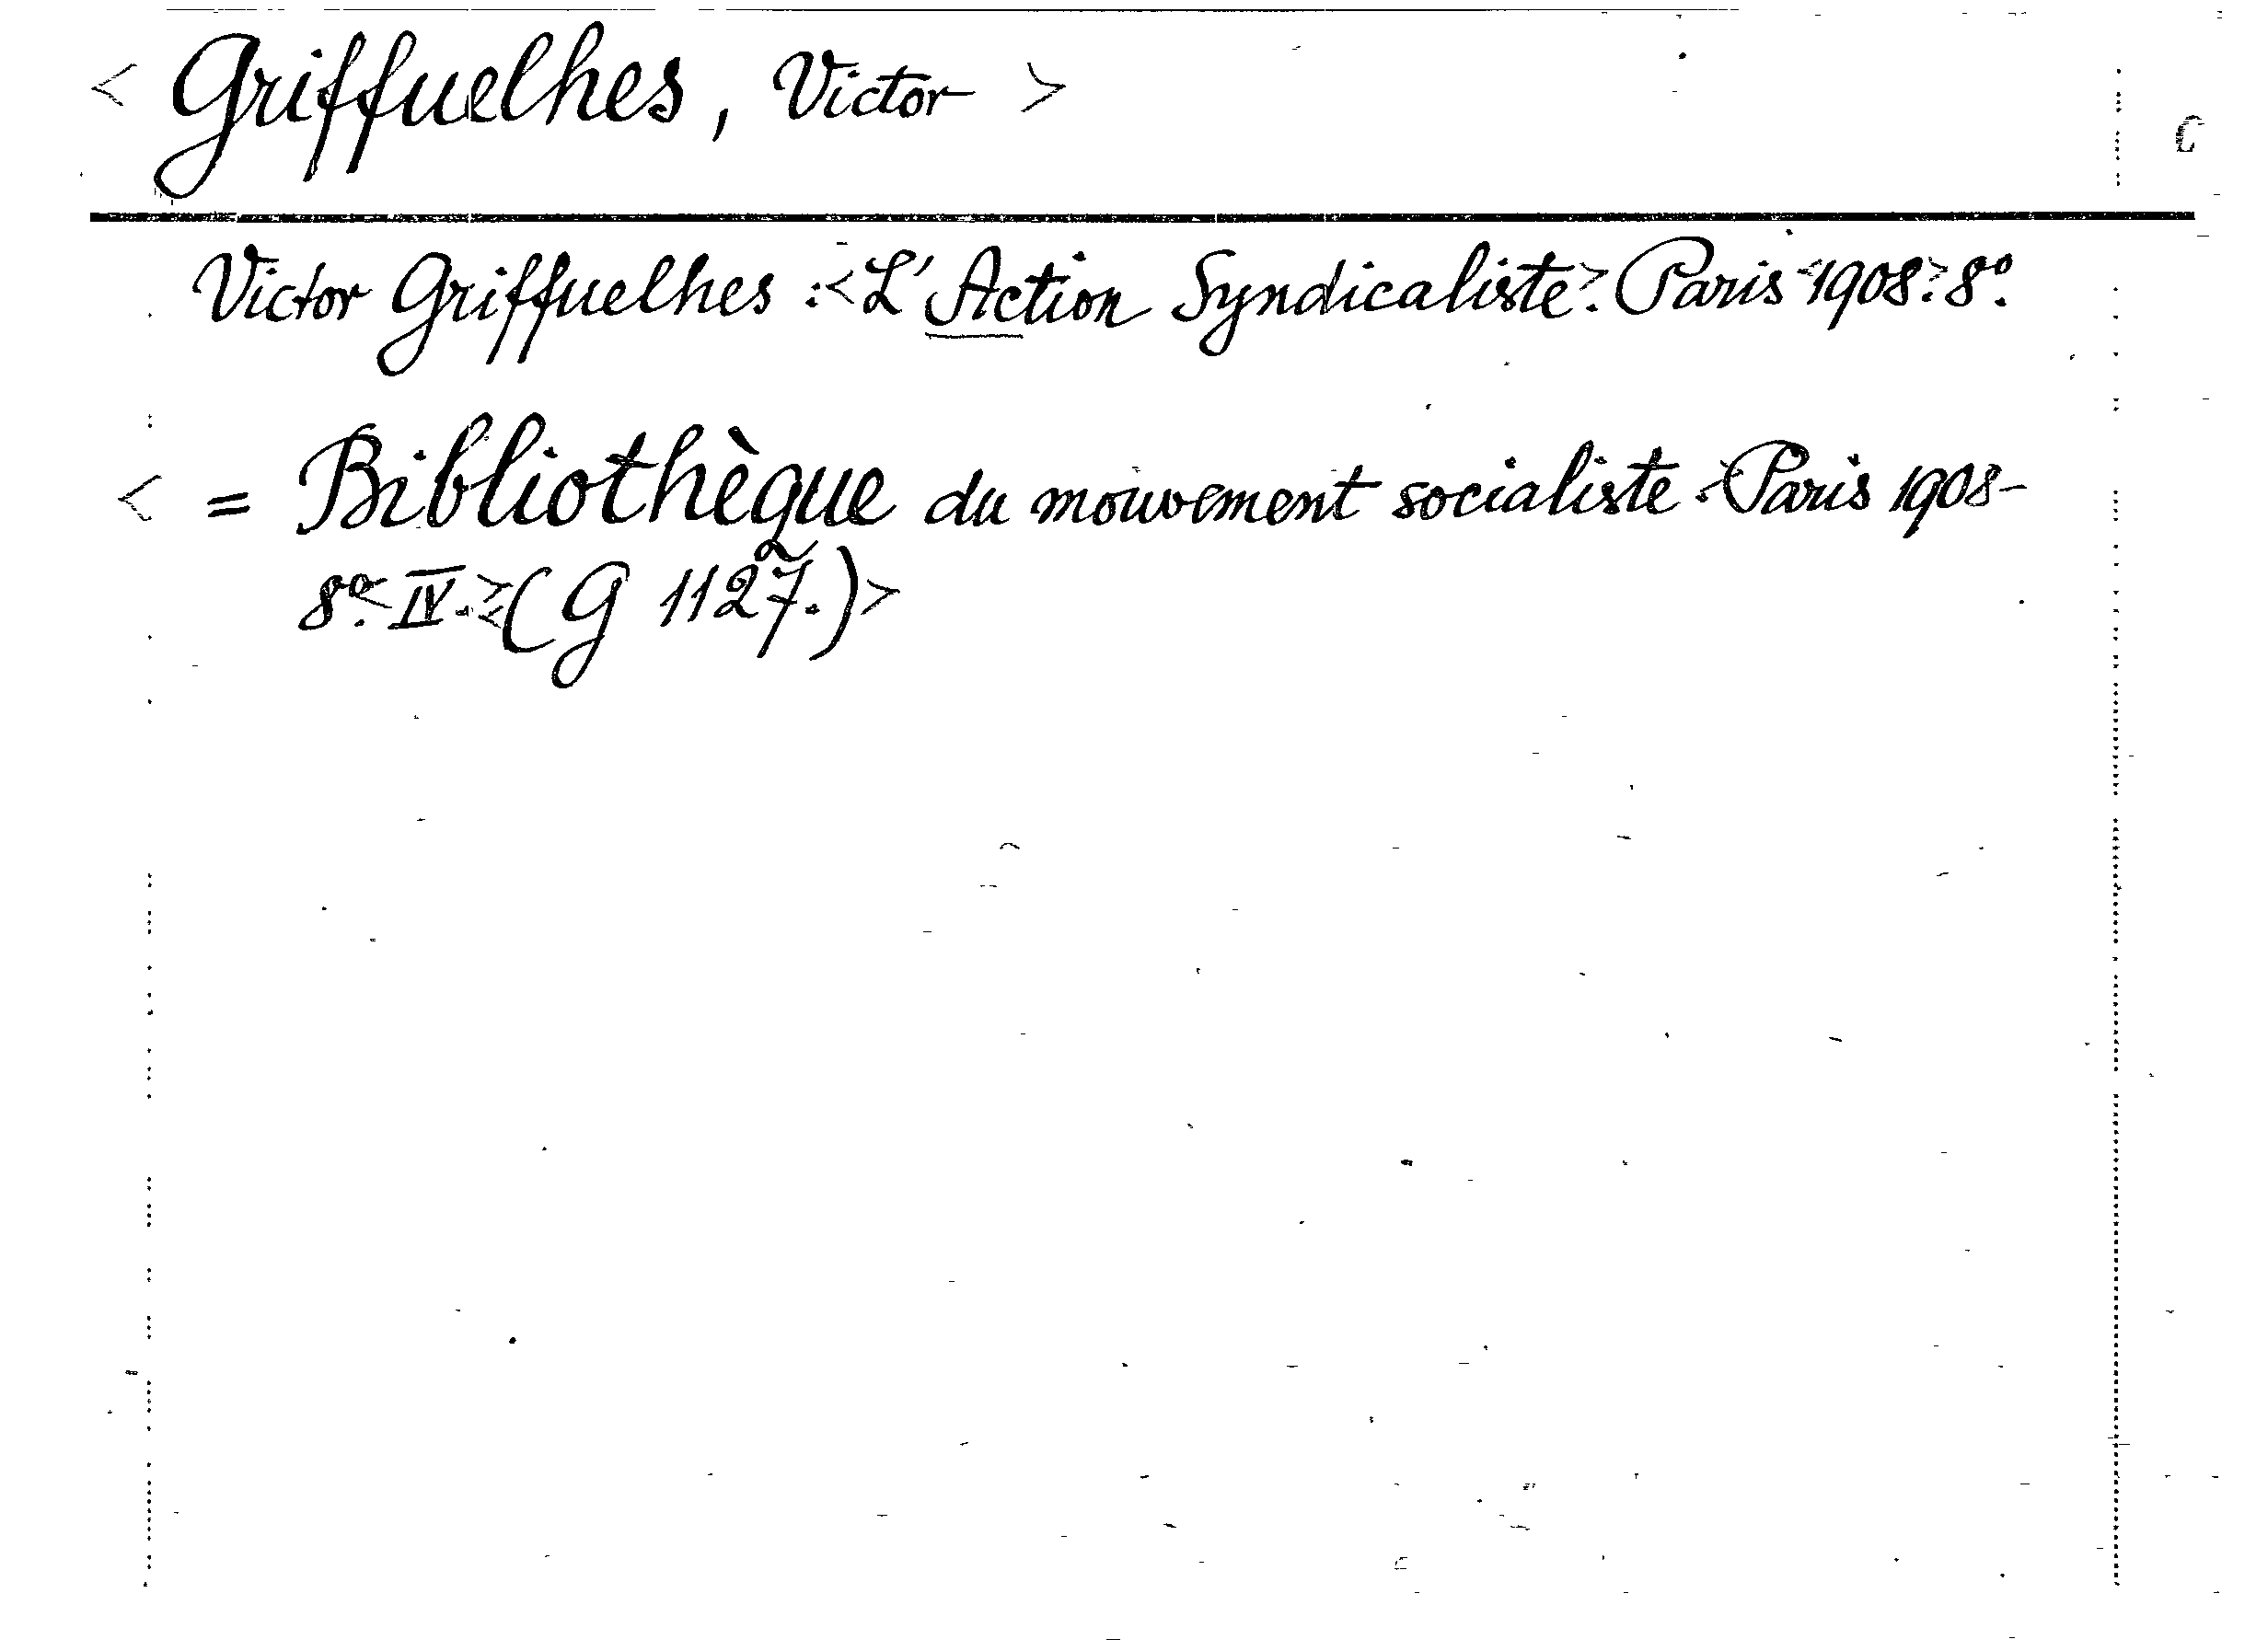 < Griffuelhes, Victor >
C
Victor Griffuelhes :<L'Action Syndicaliste>. Paris <1908>. 8º.
< = Bibliothèque du mouvement socialiste.<Paris 1908-
8º.< IV.><(G 1127.)>